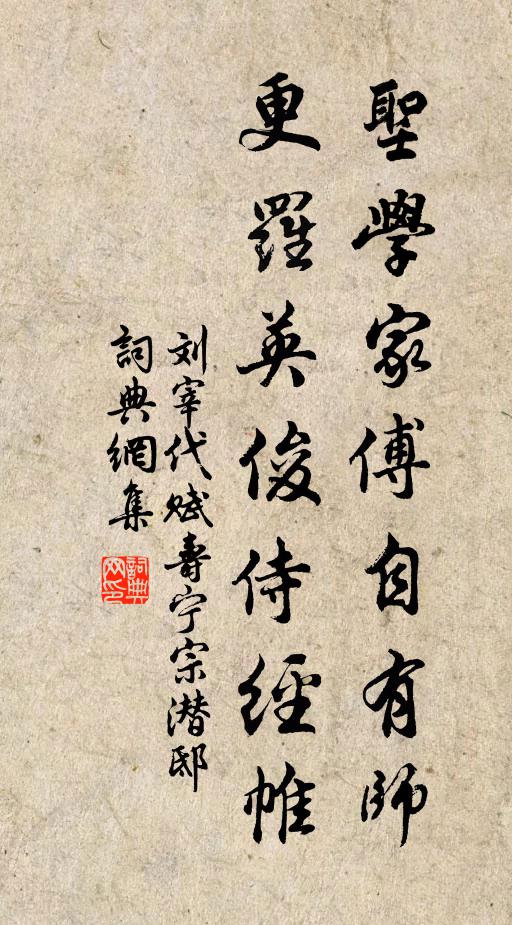 聖學家傅自有師
更羅英俊侍經帷
刘宰代赋壽宁宗潜邸
詞典網集
詞典网印